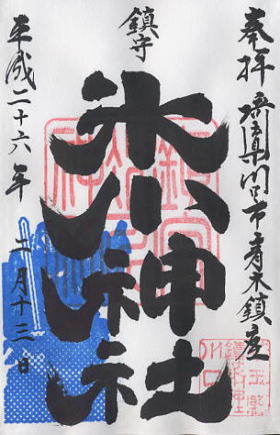 奉拝 埼玉県川口市青木鎮座
鎮守
氷川神社
平成二十六年
月十三日